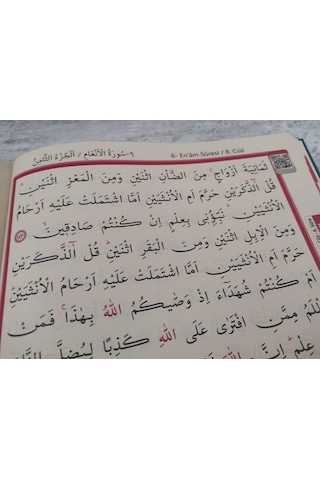 ٦-سُورَةُ الْاَنْعَامِ / اَلْجُزْءُ الثَّامِنُ
6- En'âm Sûresi / 8. Cüz
ثَمَانِيَةَ اَزْوَاجٍۚ مِنَ الضَّأْنِ اثْنَيْنِ وَمِنَ الْمَعْزِ اثْنَيْنِۜ
قُلْ آٰلذَّكَرَيْنِ حَرَّمَ اَمِ الْاُنْثَيَيْنِ اَمَّا اشْتَمَلَتْ عَلَيْهِ اَرْحَامُ
الْاُنْثَيَيْنِۜ نَبِّؤُ۫نٖي بِعِلْمٍ اِنْ كُنْتُمْ صَادِقٖينَۙ
وَمِنَ الْاِبِلِ اثْنَيْنِ وَمِنَ الْبَقَرِ اثْنَيْنِۜ قُلْ آٰلذَّكَرَيْنِ
حَرَّمَ اَمِ الْاُنْثَيَيْنِ اَمَّا اشْتَمَلَتْ عَلَيْهِ اَرْحَامُ الْاُنْثَيَيْنِۜ
اَمْ كُنْتُمْ شُهَدَٓاءَ اِذْ وَصّٰيكُمُ اللّٰهُ بِهٰذَاۚ فَمَنْ
مِمَّنِ افْتَرٰى عَلَى اللّٰهِ كَذِبًا لِيُضِلَّ
عِلْمٍۜ اِنَّ